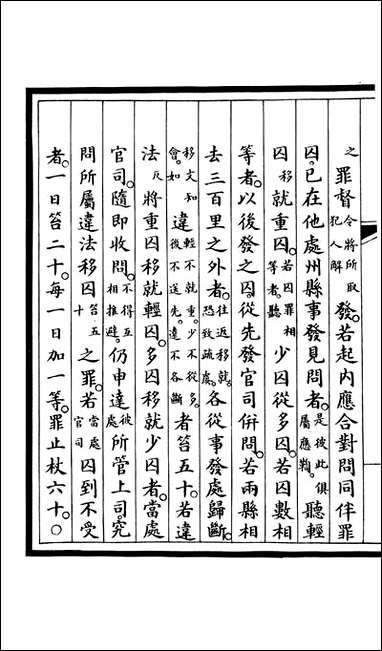 之罪督令將所取犯人解發。若起內應合對問同伴罪
囚。已在他處州縣事發見問者。是彼此俱屬應鞫。聽輕
囚移就重囚。若囚罪相等者。聽少囚從多囚。若囚數相
等者。以後發之囚。從先發官司併問。若兩縣相
去三百里之外者。往返移就。恐致疏虞。各從事發處歸斷。
移文知會。如違輕不就重。少不從多。後不送先。遠不各斷者笞五十。若違
法反將重囚移就輕囚。多囚移就少囚者。當處
官司。隨即收問。不得互相推避。仍申達彼處所管上司。究
問所屬違法移囚笞五十之罪。若當處官司囚到不受
者。一日笞二十。每一日加一等。罪止杖六十。○